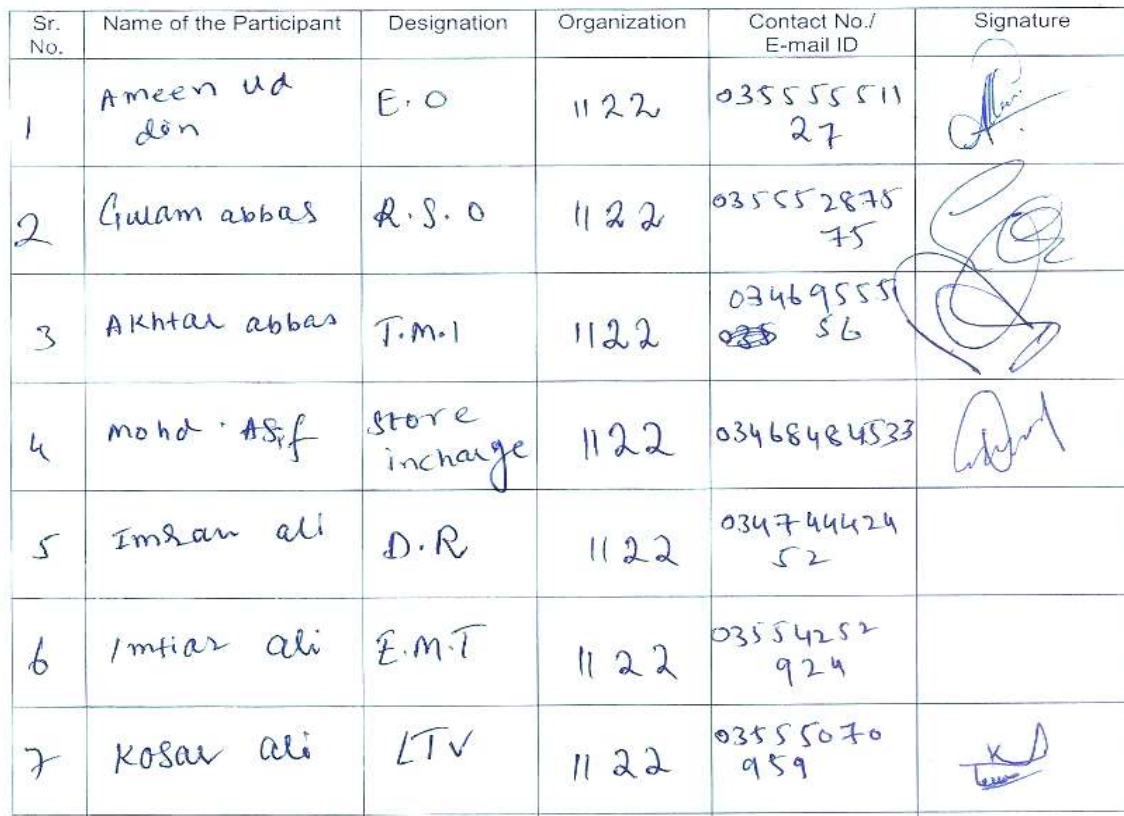 Sr. No. Name of the Participant Designation Organization Contact No./ E-mail ID Signature
1 Ameen ud din E.O 1122 03555551127
2 Gulam abbas R.S.O 1122 03555287575
3 Akhtar abbas T.M.I 1122 03469555156
4 Mohd. Asif Store incharge 1122 03468484533
5 Imran ali D.R 1122 03474442452
6 Imtiaz ali E.M.T 1122 03554252924
7 Kosar ali LTV 1122 03555070959